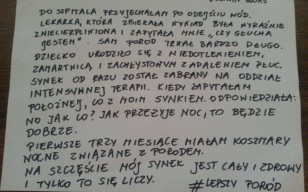 DO SZPITALA PRZYJECHAŁAM PO ODEJŚCIU WÓD.
LEKARKA, KTÓRA ZBIERAŁA WYWIAD BYŁA WYRAŹNIE
ZNIECIERPLIWIONA I ZAPYTAŁA MNIE „CZY GŁUCHA
JESTEM". SAM PORÓD TRWAŁ BARDZO DŁUGO.
DZIECKO URODZIŁO SIĘ Z NIEDOTLENIENIEM,
ZAMARTWICĄ I ZACHŁYSTOWYM ZAPALENIEM PŁUC.
SYNEK OD RAZU ZOSTAŁ ZABRANY NA ODDZIAŁ
INTENSYWNEJ TERAPII. KIEDY ZAPYTAŁAM
POŁOŻNEJ, CO Z MOIM SYNKIEM. ODPOWIEDZIAŁA:
NO JAK CO? JAK PRZEŻYJE NOC, TO BĘDZIE
DOBRZE.
PIERWSZE TRZY MIESIĄCE MIAŁAM KOSZMARY
NOCNE ZWIĄZANE Z PORODEM.
NA SZCZĘŚCIE MÓJ SYNEK JEST CAŁY I ZDROWY
I TYLKO TO SIĘ LICZY.
#LEPSZY PORÓD